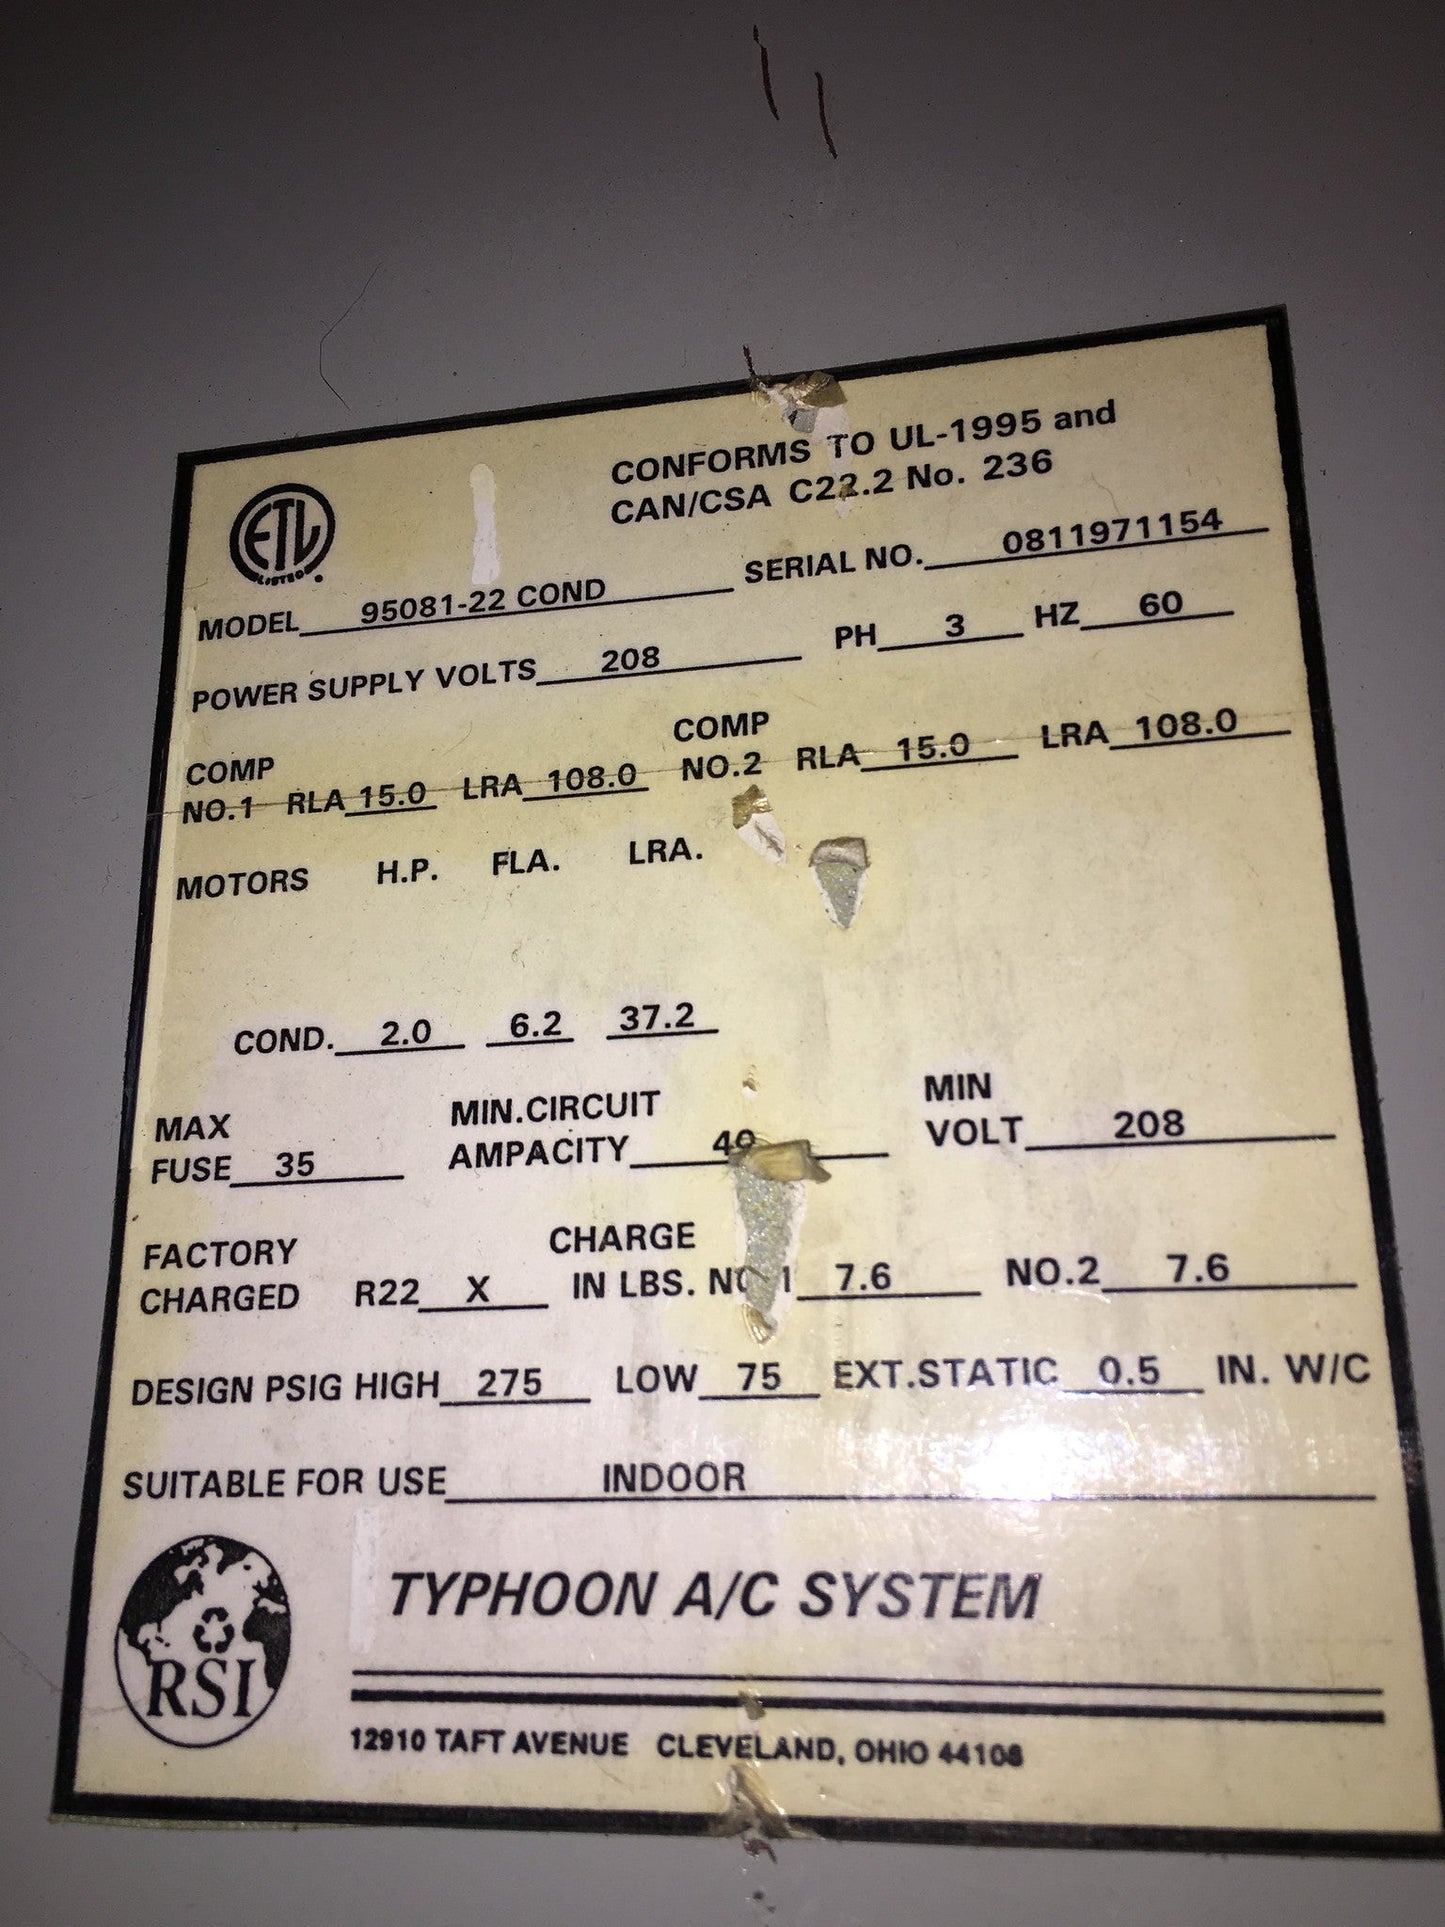 ETL
LISTED
CONFORMS TO UL-1995 and
CAN/CSA C22.2 No. 236
MODEL 95081-22 COND SERIAL NO. 0811971154
POWER SUPPLY VOLTS 208 PH 3 HZ 60
COMP NO.1 RLA 15.0 LRA 108.0 COMP NO.2 RLA 15.0 LRA 108.0
MOTORS H.P. FLA. LRA.
COND. 2.0 6.2 37.2
MAX FUSE 35 MIN.CIRCUIT AMPACITY 40 MIN VOLT 208
FACTORY CHARGED R22 X CHARGE IN LBS. NO.1 7.6 NO.2 7.6
DESIGN PSIG HIGH 275 LOW 75 EXT.STATIC 0.5 IN. W/C
SUITABLE FOR USE INDOOR
RSI
TYPHOON A/C SYSTEM
12910 TAFT AVENUE CLEVELAND, OHIO 44108